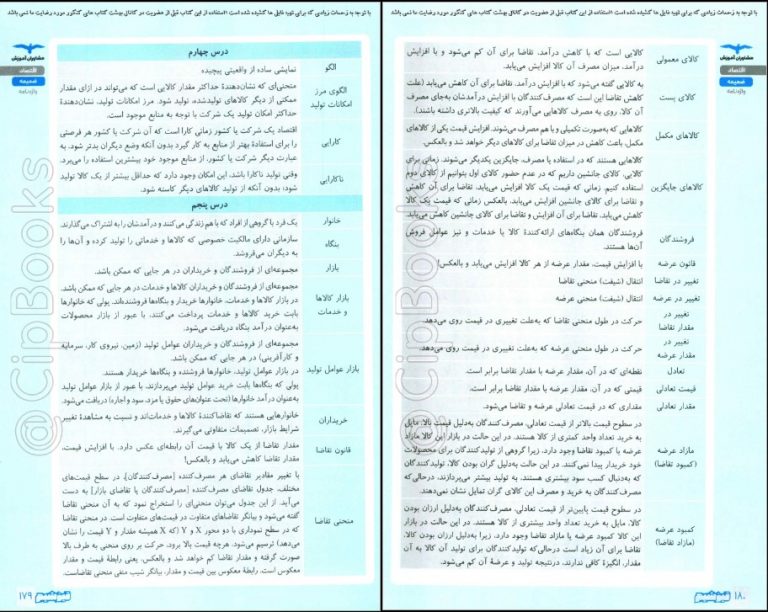 با توجه به زحمات زیادی که برای تهیه فایل ها کشیده شده است استفاده از این کتاب قبل از عضویت در کانال بهشت کتاب های کنکور مورد رضایت ما نمی باشد
مشاوران آموزش
اقتصاد
ضمیمه
واژه‌نامه
درس چهارم
الگو
نمایشی ساده از واقعیتی پیچیده
الگوی مرز امکانات تولید
منحنی‌ای که نشان‌دهندهٔ حداکثر مقدار کالایی است که می‌تواند در ازای مقدار
ممکنی از دیگر کالاهای تولیدشده، تولید شود. مرز امکانات تولید، نشان‌دهندهٔ
حداکثر امکان تولید یک شرکت با توجه به منابع موجود است.
کارایی
اقتصاد یک شرکت یا کشور زمانی کارا است که آن شرکت یا کشور هر فرصتی
را برای استفادهٔ بهتر از منابع به کار گیرد بدون آنکه وضع دیگران بدتر شود. به
عبارت دیگر شرکت یا کشور، از منابع موجود خود بیشترین استفاده را می‌برد.
ناکارایی
وقتی تولید ناکارا باشد، این امکان وجود دارد که حداقل بیشتر از یک کالا تولید
شود؛ بدون آنکه از تولید کالاهای دیگر کاسته شود.
درس پنجم
خانوار
یک فرد یا گروهی از افراد که با هم زندگی می‌کنند و درآمدشان را به اشتراک می‌گذارند.
بنگاه
سازمانی دارای مالکیت خصوصی که کالاها و خدماتی را تولید کرده و آن‌ها را
به دیگران می‌فروشد.
بازار
مجموعه‌ای از فروشندگان و خریداران در هر جایی که ممکن باشد.
بازار کالاها و خدمات
مجموعه‌ای از فروشندگان و خریداران کالاها و خدمات در هر جایی که ممکن باشد.
در بازار کالاها و خدمات، خانوارها خریدار و بنگاه‌ها فروشنده‌اند. پولی که خانوارها
بابت خرید کالاها و خدمات پرداخت می‌کنند، با عبور از بازار محصولات
به‌عنوان درآمد بنگاه دریافت می‌شود.
بازار عوامل تولید
مجموعه‌ای از فروشندگان و خریداران عوامل تولید (زمین، نیروی کار، سرمایه
و کارآفرینی) در هر جایی که ممکن باشد.
در بازار عوامل تولید، خانوارها فروشنده و بنگاه‌ها خریدار هستند.
پولی که بنگاه‌ها بابت خرید عوامل تولید می‌پردازند، با عبور از بازار عوامل تولید
به‌عنوان درآمد خانوارها (تحت عنوان‌های حقوق یا مزد، سود و اجاره) دریافت می‌شود.
خریداران
خانوارهایی هستند که تقاضاکنندهٔ کالاها و خدمات‌اند و نسبت به مشاهدهٔ تغییر
شرایط بازار، تصمیمات متفاوتی می‌گیرند.
قانون تقاضا
مقدار تقاضا از یک کالا با قیمت آن رابطه‌ای عکس دارد. با افزایش قیمت،
مقدار تقاضا کاهش می‌یابد و بالعکس!
منحنی تقاضا
با تغییر مقادیر تقاضای هر مصرف‌کننده [مصرف‌کنندگان]، در سطح قیمت‌های
مختلف، جدول تقاضای مصرف‌کننده [مصرف‌کنندگان یا تقاضای بازار] به دست
می‌آید. از این جدول می‌توان منحنی‌ای را استخراج نمود که به آن منحنی تقاضا
گفته می‌شود و بیانگر تقاضاهای متفاوت در قیمت‌های متفاوت است. در منحنی تقاضا
که در سطح نموداری با دو محور X و Y (که X همیشه مقدار و Y قیمت را نشان
می‌دهد) ترسیم می‌شود. هرچه قیمت بالا برود، حرکت بر روی منحنی به طرف بالا
صورت گرفته و مقدار تقاضا کم خواهد شد و بالعکس. یعنی رابطهٔ قیمت و مقدار
معکوس است. رابطهٔ معکوس بین قیمت و مقدار، بیانگر شیب منفی منحنی تقاضاست.
۱۷۹
با توجه به زحمات زیادی که برای تهیه فایل ها کشیده شده است استفاده از این کتاب قبل از عضویت در کانال بهشت کتاب های کنکور مورد رضایت ما نمی باشد
مشاوران آموزش
اقتصاد
ضمیمه
واژه‌نامه
کالای معمولی
کالایی است که با کاهش درآمد، تقاضا برای آن کم می‌شود و با افزایش
درآمد، میزان مصرف آن کالا افزایش می‌یابد.
کالای پست
به کالایی گفته می‌شود که با افزایش درآمد، تقاضا برای آن کاهش می‌یابد (علت
کاهش تقاضا این است که مصرف‌کنندگان با افزایش درآمدشان به‌جای مصرف
آن کالا، روی به مصرف کالاهایی می‌آورند که کیفیت بالاتری داشته باشند).
کالاهای مکمل
کالاهایی که به‌صورت تکمیلی و با هم مصرف می‌شوند. افزایش قیمت یکی از کالاهای
مکمل باعث کاهش در میزان تقاضا برای کالاهای دیگر خواهد شد و بالعکس.
کالاهای جایگزین
کالاهایی هستند که در استفاده یا مصرف، جایگزین یکدیگر می‌شوند. زمانی برای
کالایی، کالای جانشین داریم که در عدم حضور کالای اول بتوانیم از کالای دوم
استفاده کنیم. زمانی که قیمت یک کالا افزایش می‌یابد، تقاضا برای آن کاهش
و تقاضا برای کالای جانشین افزایش می‌یابد. بالعکس زمانی که قیمت یک کالا
کاهش می‌یابد، تقاضا برای آن افزایش و تقاضا برای کالای جانشین کاهش می‌یابد.
فروشندگان
فروشندگان همان بنگاه‌های ارائه‌کنندهٔ کالا یا خدمات و نیز عوامل فروش
آن‌ها هستند.
قانون عرضه
با افزایش قیمت، مقدار عرضه از هر کالا افزایش می‌یابد و بالعکس!
تغییر در تقاضا
انتقال (شیفت) منحنی تقاضا
تغییر در عرضه
انتقال (شیفت) منحنی عرضه
تغییر در مقدار تقاضا
حرکت در طول منحنی تقاضا که به‌علت تغییری در قیمت روی می‌دهد.
تغییر در مقدار عرضه
حرکت در طول منحنی عرضه که به‌علت تغییری در قیمت روی می‌دهد.
تعادل
نقطه‌ای که در آن، مقدار عرضه با مقدار تقاضا برابر است.
قیمت تعادلی
قیمتی که در آن، مقدار عرضه با مقدار تقاضا برابر است.
مقدار تعادلی
مقداری که در قیمت تعادلی عرضه و تقاضا می‌شود.
مازاد عرضه (کمبود تقاضا)
در سطوح قیمت بالاتر از قیمت تعادلی، مصرف‌کنندگان به‌دلیل قیمت بالا، مایل
به خرید تعداد واحد کمتری از کالا هستند. در این حالت در بازار این کالا مازاد
عرضه یا کمبود تقاضا وجود دارد. زیرا گروهی از تولیدکنندگان برای محصولات
خود خریدار پیدا نمی‌کنند. در این حالت به‌دلیل گران بودن کالا، تولیدکنندگان
که به‌دنبال کسب سود بیشتری هستند، به تولید بیشتر می‌پردازند، درحالی‌که
مصرف‌کنندگان به خرید و مصرف این کالای گران تمایل نشان نمی‌دهند.
کمبود عرضه (مازاد تقاضا)
در سطوح قیمت پایین‌تر از قیمت تعادلی، مصرف‌کنندگان به‌دلیل ارزان بودن
کالا، مایل به خرید تعداد واحد بیشتری از کالا هستند. در این حالت در بازار
این کالا کمبود عرضه یا مازاد تقاضا وجود دارد، زیرا به‌دلیل ارزان بودن کالا،
تقاضا برای آن زیاد است درحالی‌که تولیدکنندگان برای تولید آن کالا به آن
مقدار، انگیزهٔ کافی ندارند، درنتیجه تولید و عرضهٔ آن کم می‌شود.
۱۸۰
@CipBooks
@CipBooks